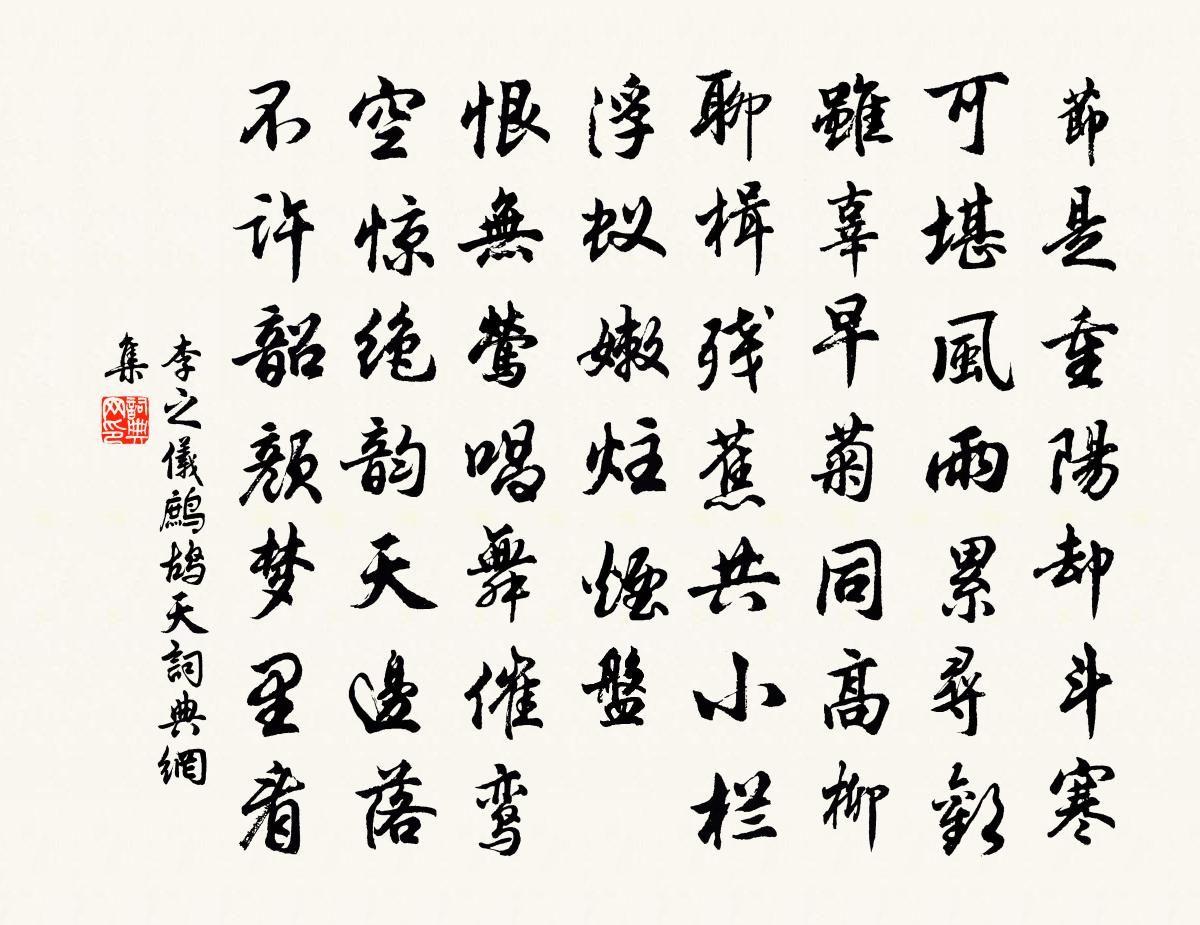 節是重陽却斗寒
可堪風雨累尋歡
雖辜早菊同高柳
聊楫残蕉共小栏
浮蚁嫩炷煙盤
恨無莺唱舞催鸾
空惊绝韵天邊落
不许韶颜梦里看
李之儀鷓鴣天詞典網
集
詞典
网印